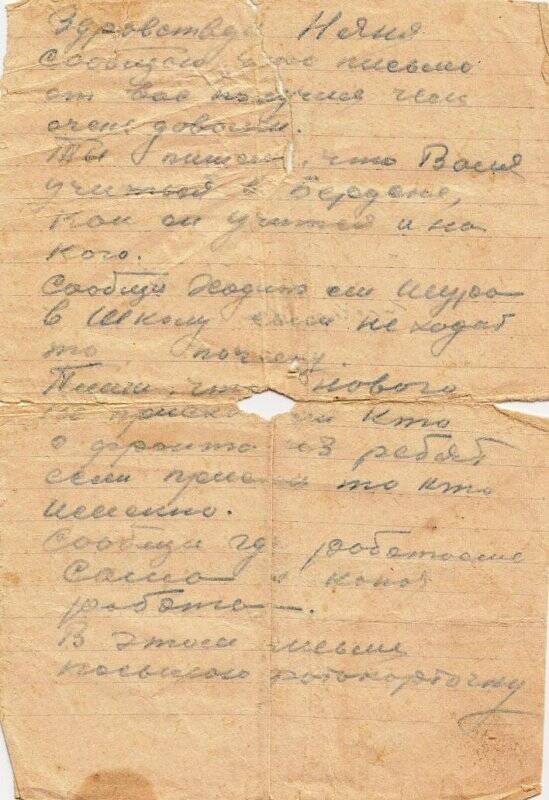 Здровствуй Няня
Сообщаю, что письмо
от вас получил чем
очень доволен.
Ты пишеш, что Валя
учиться в Бердяне,
как он учится и на
кого.
Сообщи ходит ли Шура
в школу если не ходит
то почему.
Пиши, что нового
не приех ли кто
с фронта из ребят
если приехал то кто
именно.
Сообщи где работаеш
сама и какая
работа.
В этом письме
посылаю фотокорточку